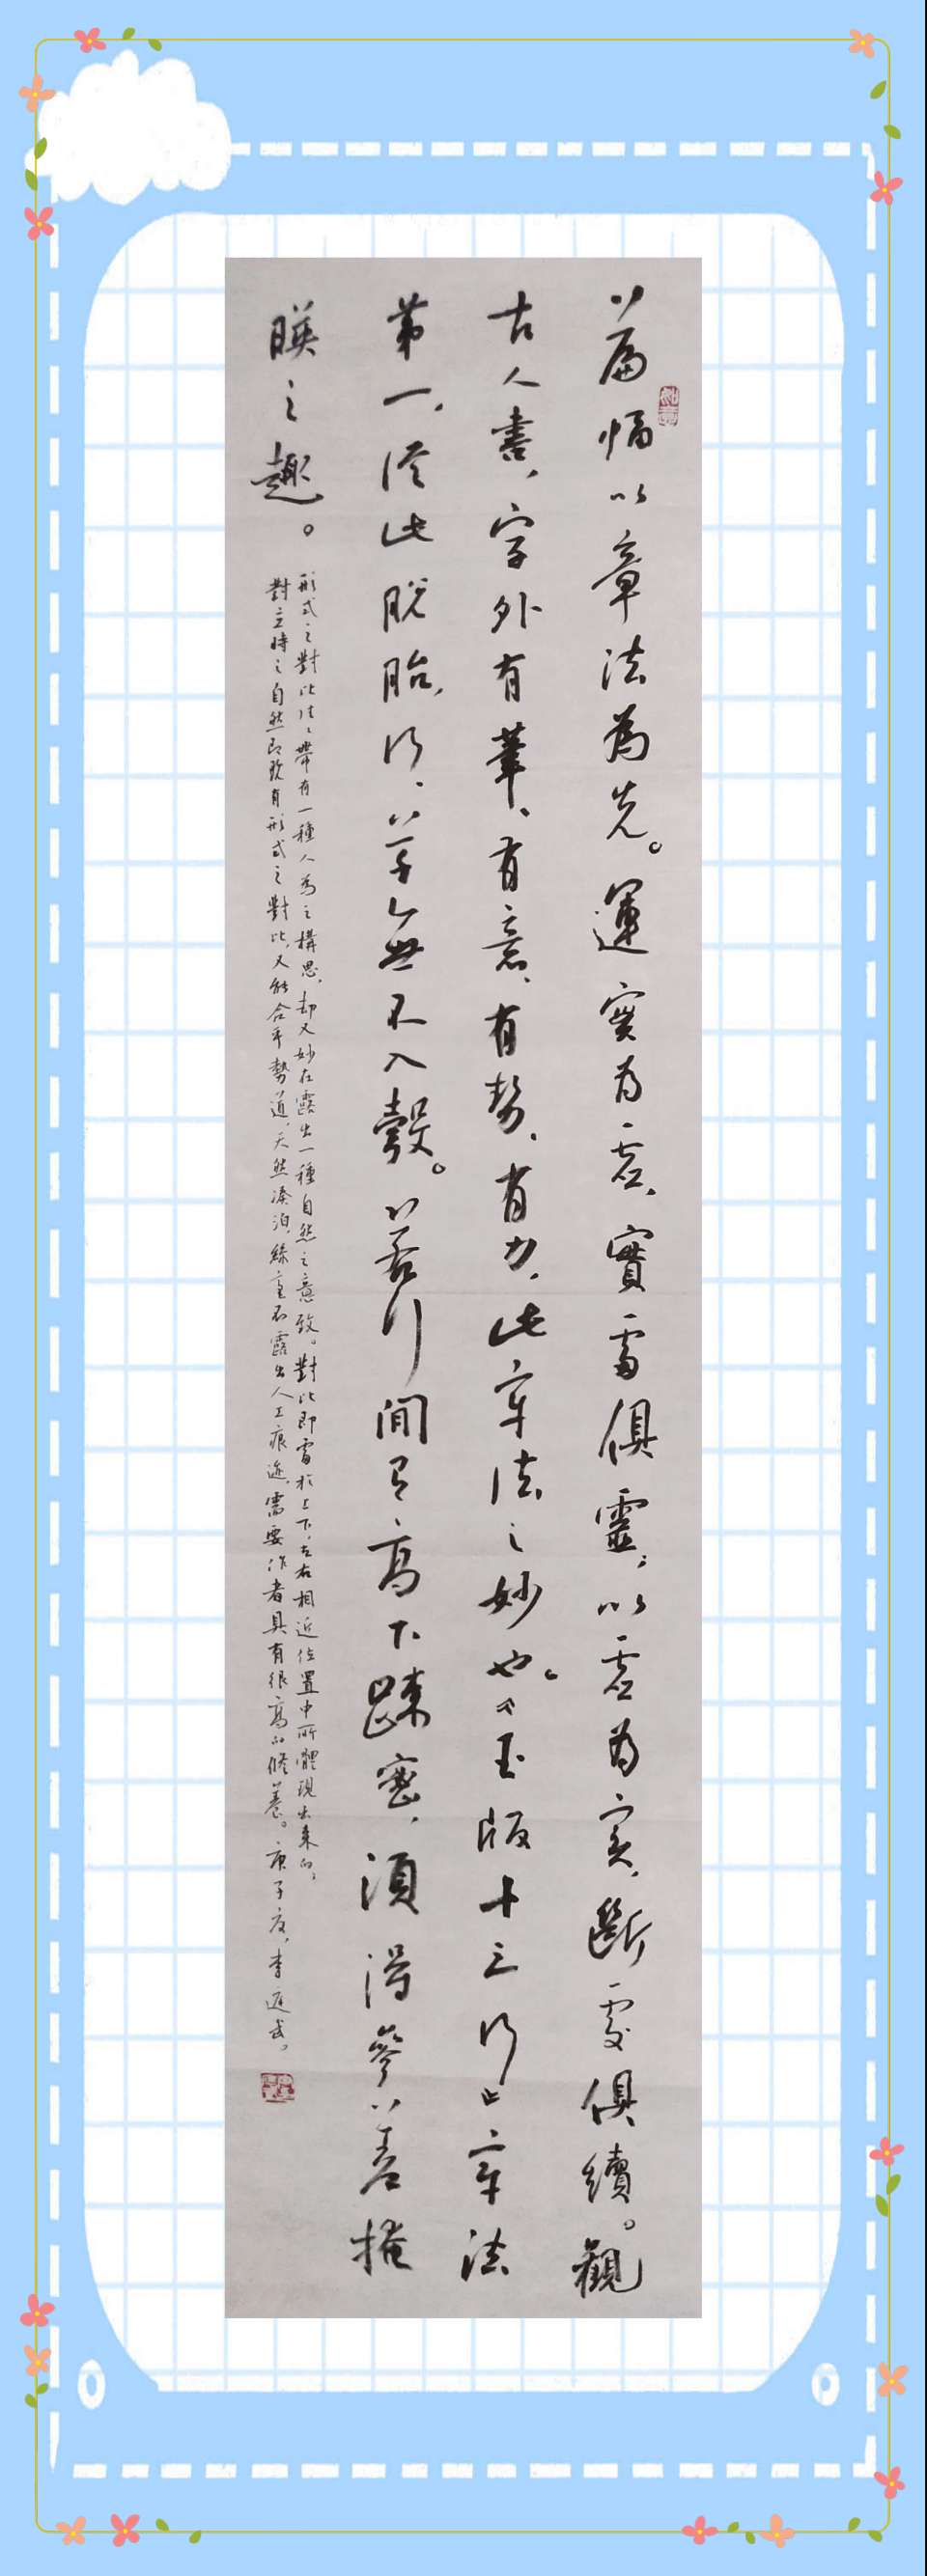 篇幅以章法為先。運實為虚，實處俱靈，以虚為實，斷處俱續。觀
古人書，字外有筆、有意、有勢、有力，此章法之妙也。《玉版十三行》章法
第一，從此脫胎，行、草無不入彀。若行間有高下疎密，須得參差掩
暎之趣。
形式之對比往往帶有一種人為之構思，却又妙在露出一種自然之意致。對比即需於上下、左右相近位置中所體現出來的，
對立時之自然即既有形式之對比，又能合乎勢道，天然凑泊，絲毫不露出人工痕迹，需要作者具有很高的修養。庚子夏，李